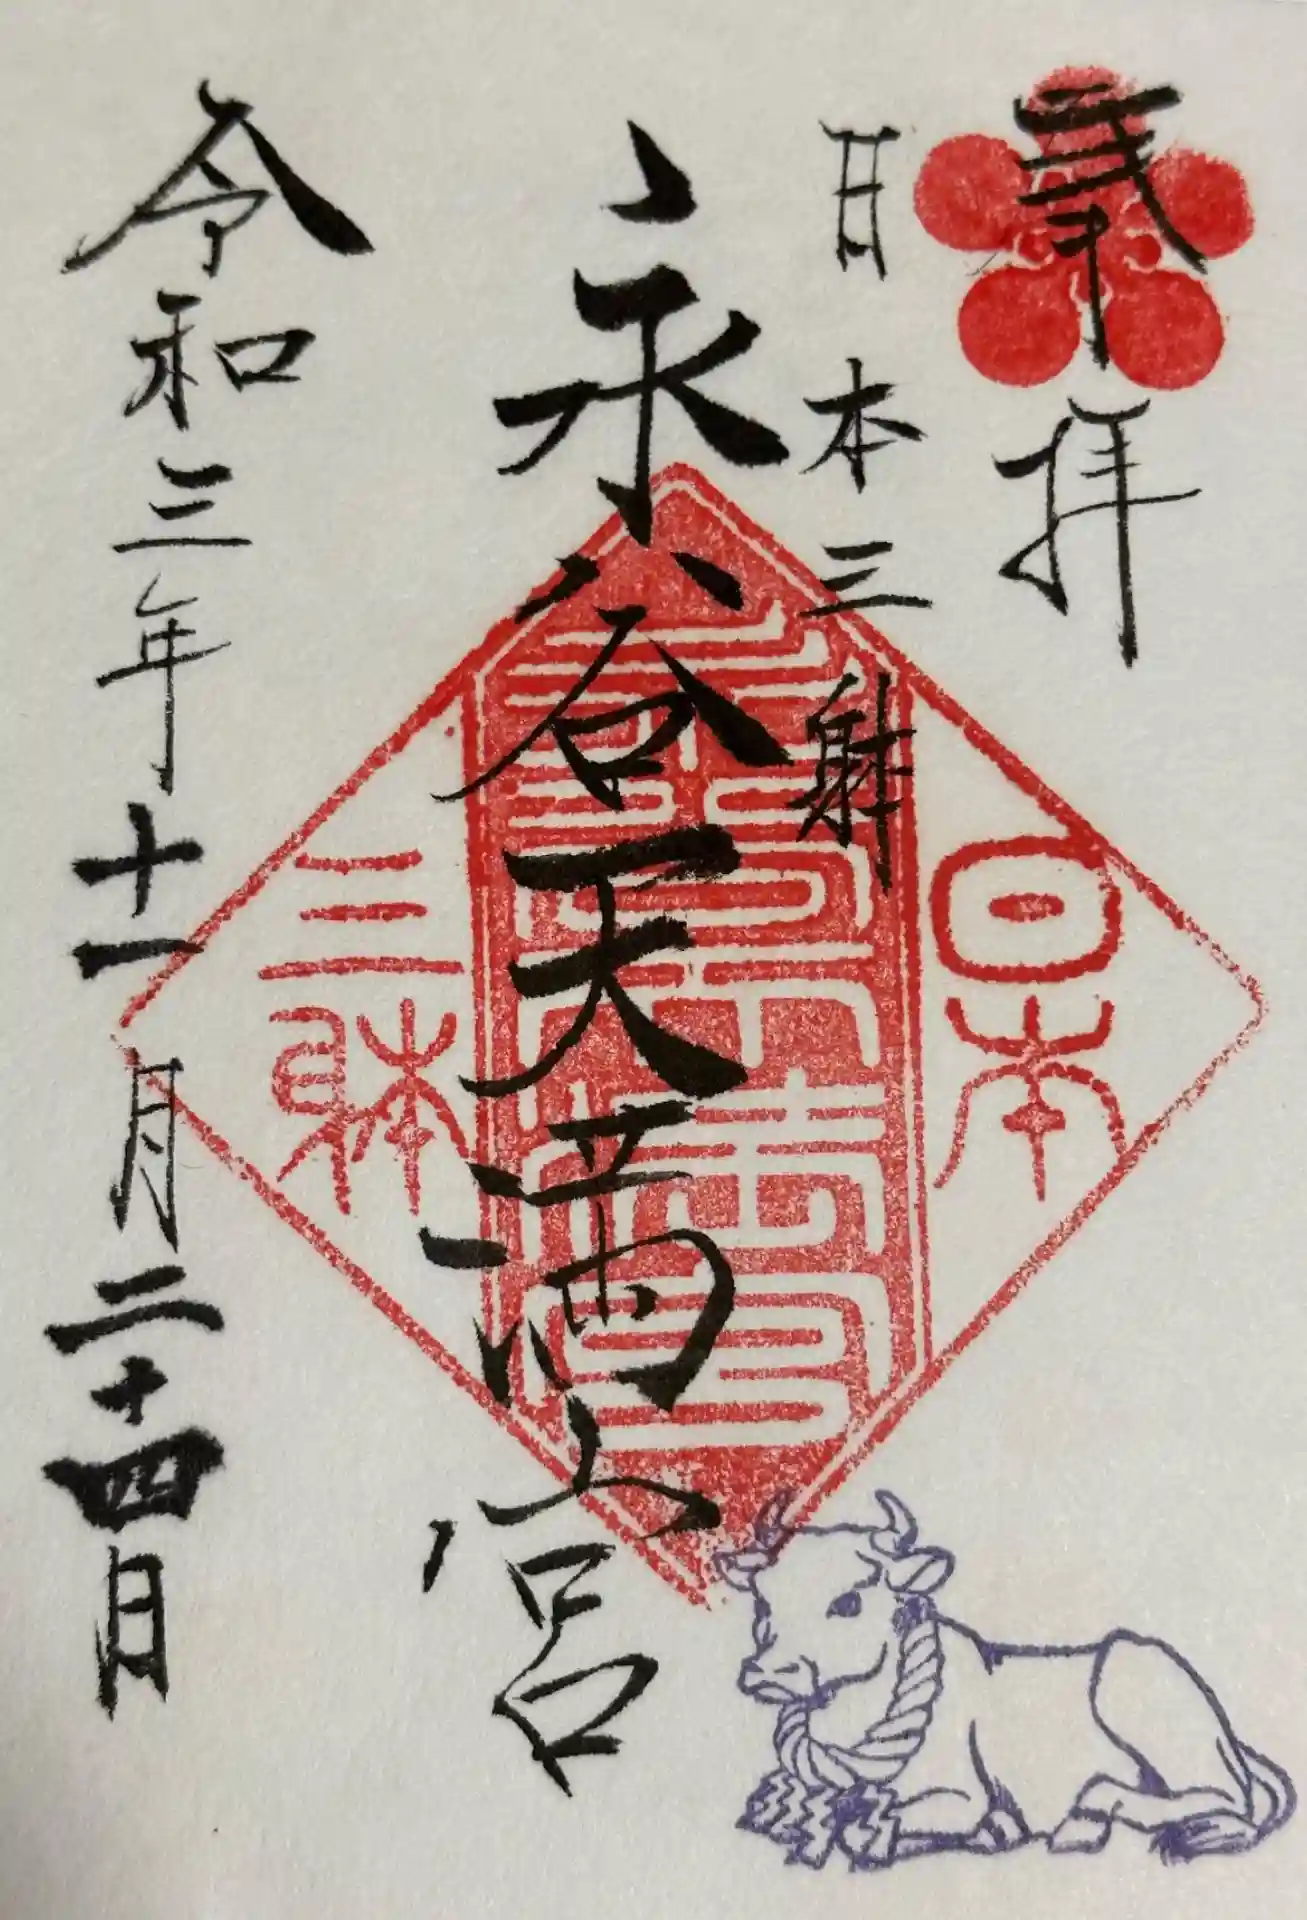 奉拝
日本三躰
永谷天満宮
令和三年十一月二十四日
日本
三躰